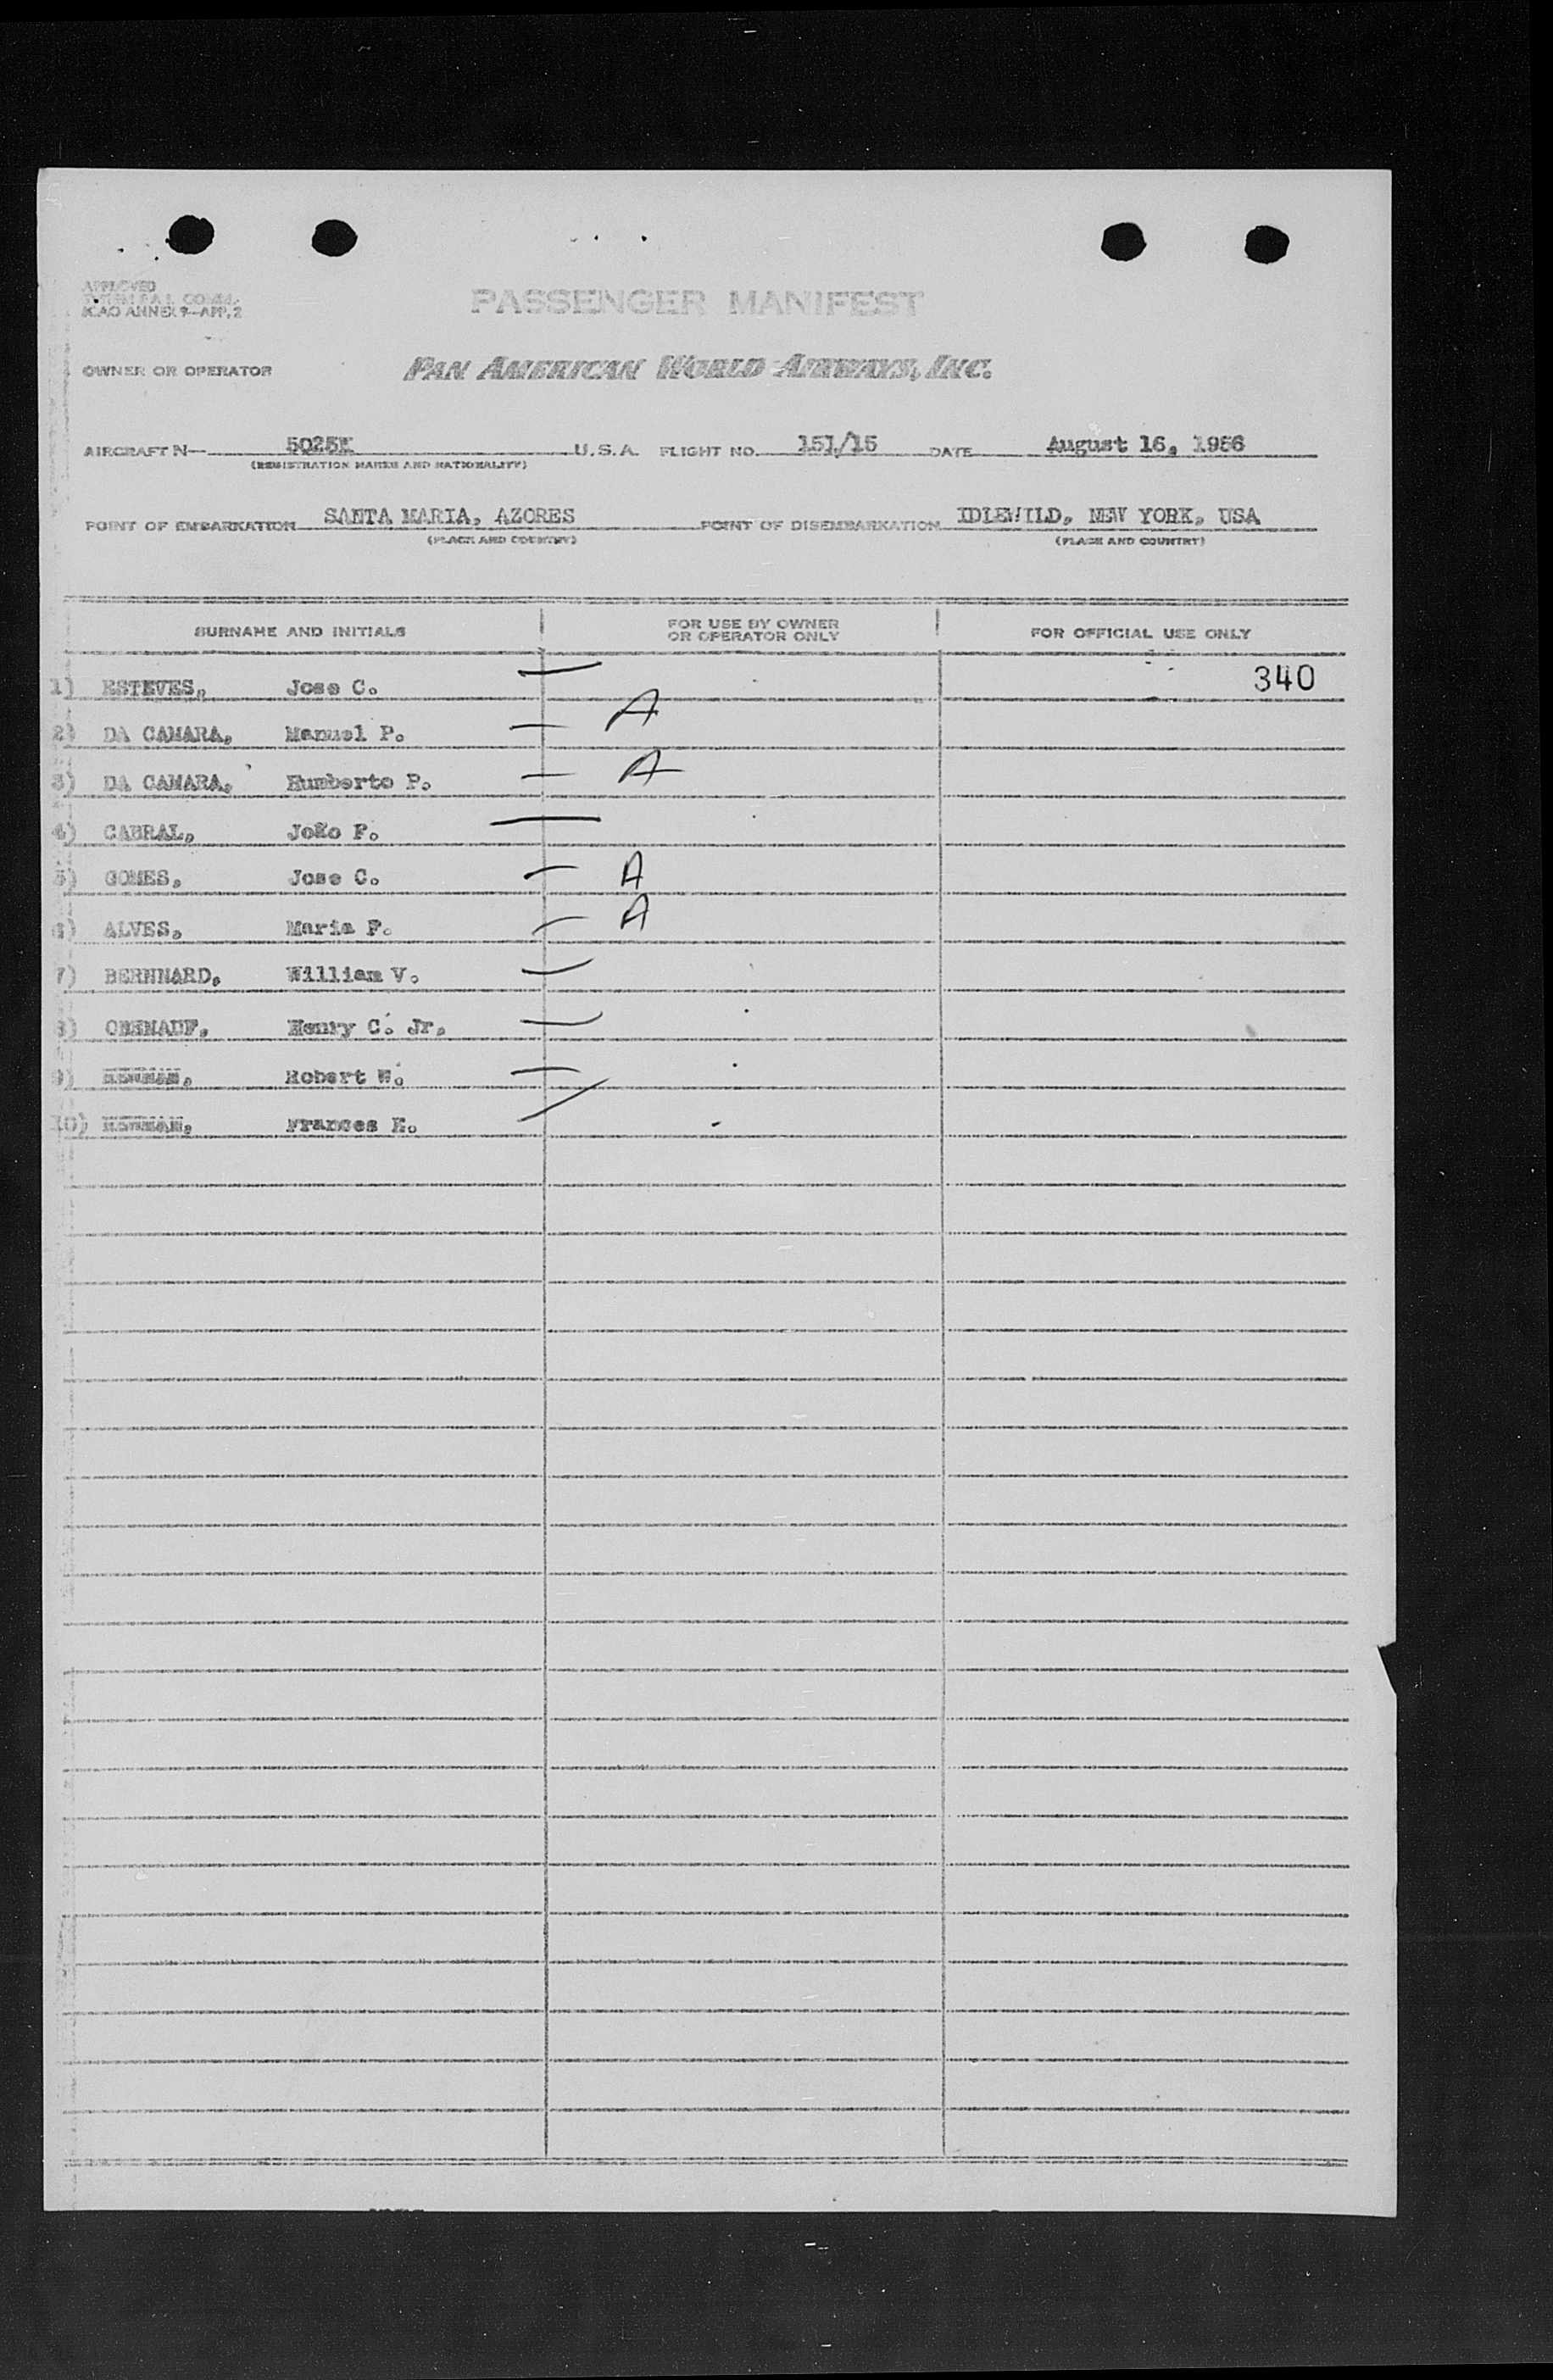 PASSENGER MANIFEST
APPROVED
ICAO ANNEX 9-APP. 2
OWNER OR OPERATOR PAN AMERICAN WORLD AIRWAYS, INC.
AIRCRAFT N— U.S.A. FLIGHT NO. 151/15 DATE August 16, 1956
(REGISTRATION MARKS AND NATIONALITY)
POINT OF EMBARKATION SANTA MARIA, AZORES POINT OF DISEMBARKATION IDLEWILD, NEW YORK, USA
(PLACE AND COUNTRY) (PLACE AND COUNTRY)
SURNAME AND INITIALS FOR USE BY OWNER OR OPERATOR ONLY FOR OFFICIAL USE ONLY
1) ESTEVES, Jose C. — 340
2) DA CAMARA, Manuel P. — A
3) DA CAMARA, Humberto P. — A
4) CABRAL, João F. —
5) GOMES, Jose C. — A
6) ALVES, Maria F. — A
7) BERNHARD, William V. —
8) OBENAUF, Henry C. Jr. —
9) Robert W. —
10) Frances E. —